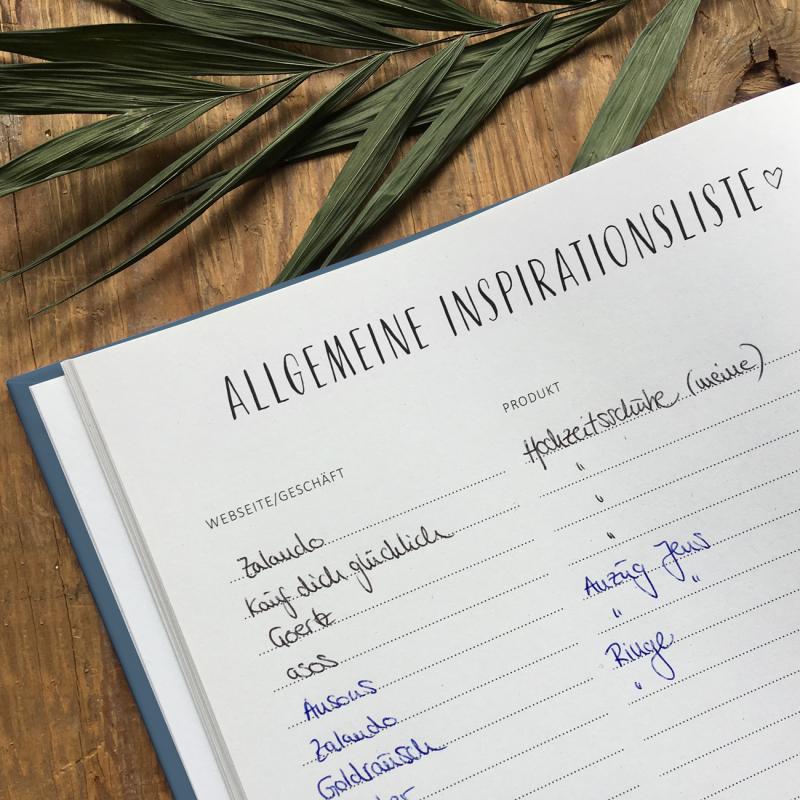 ALLGEMEINE INSPIRATIONSLISTE♡
WEBSEITE/GESCHÄFT PRODUKT
Zalando Hochzeitsschuhe (meine)
Kauf dich glücklich "
Goertz "
asos "
Ansons Anzug Jens
Zalando " "
Goldrausch Ringe
"